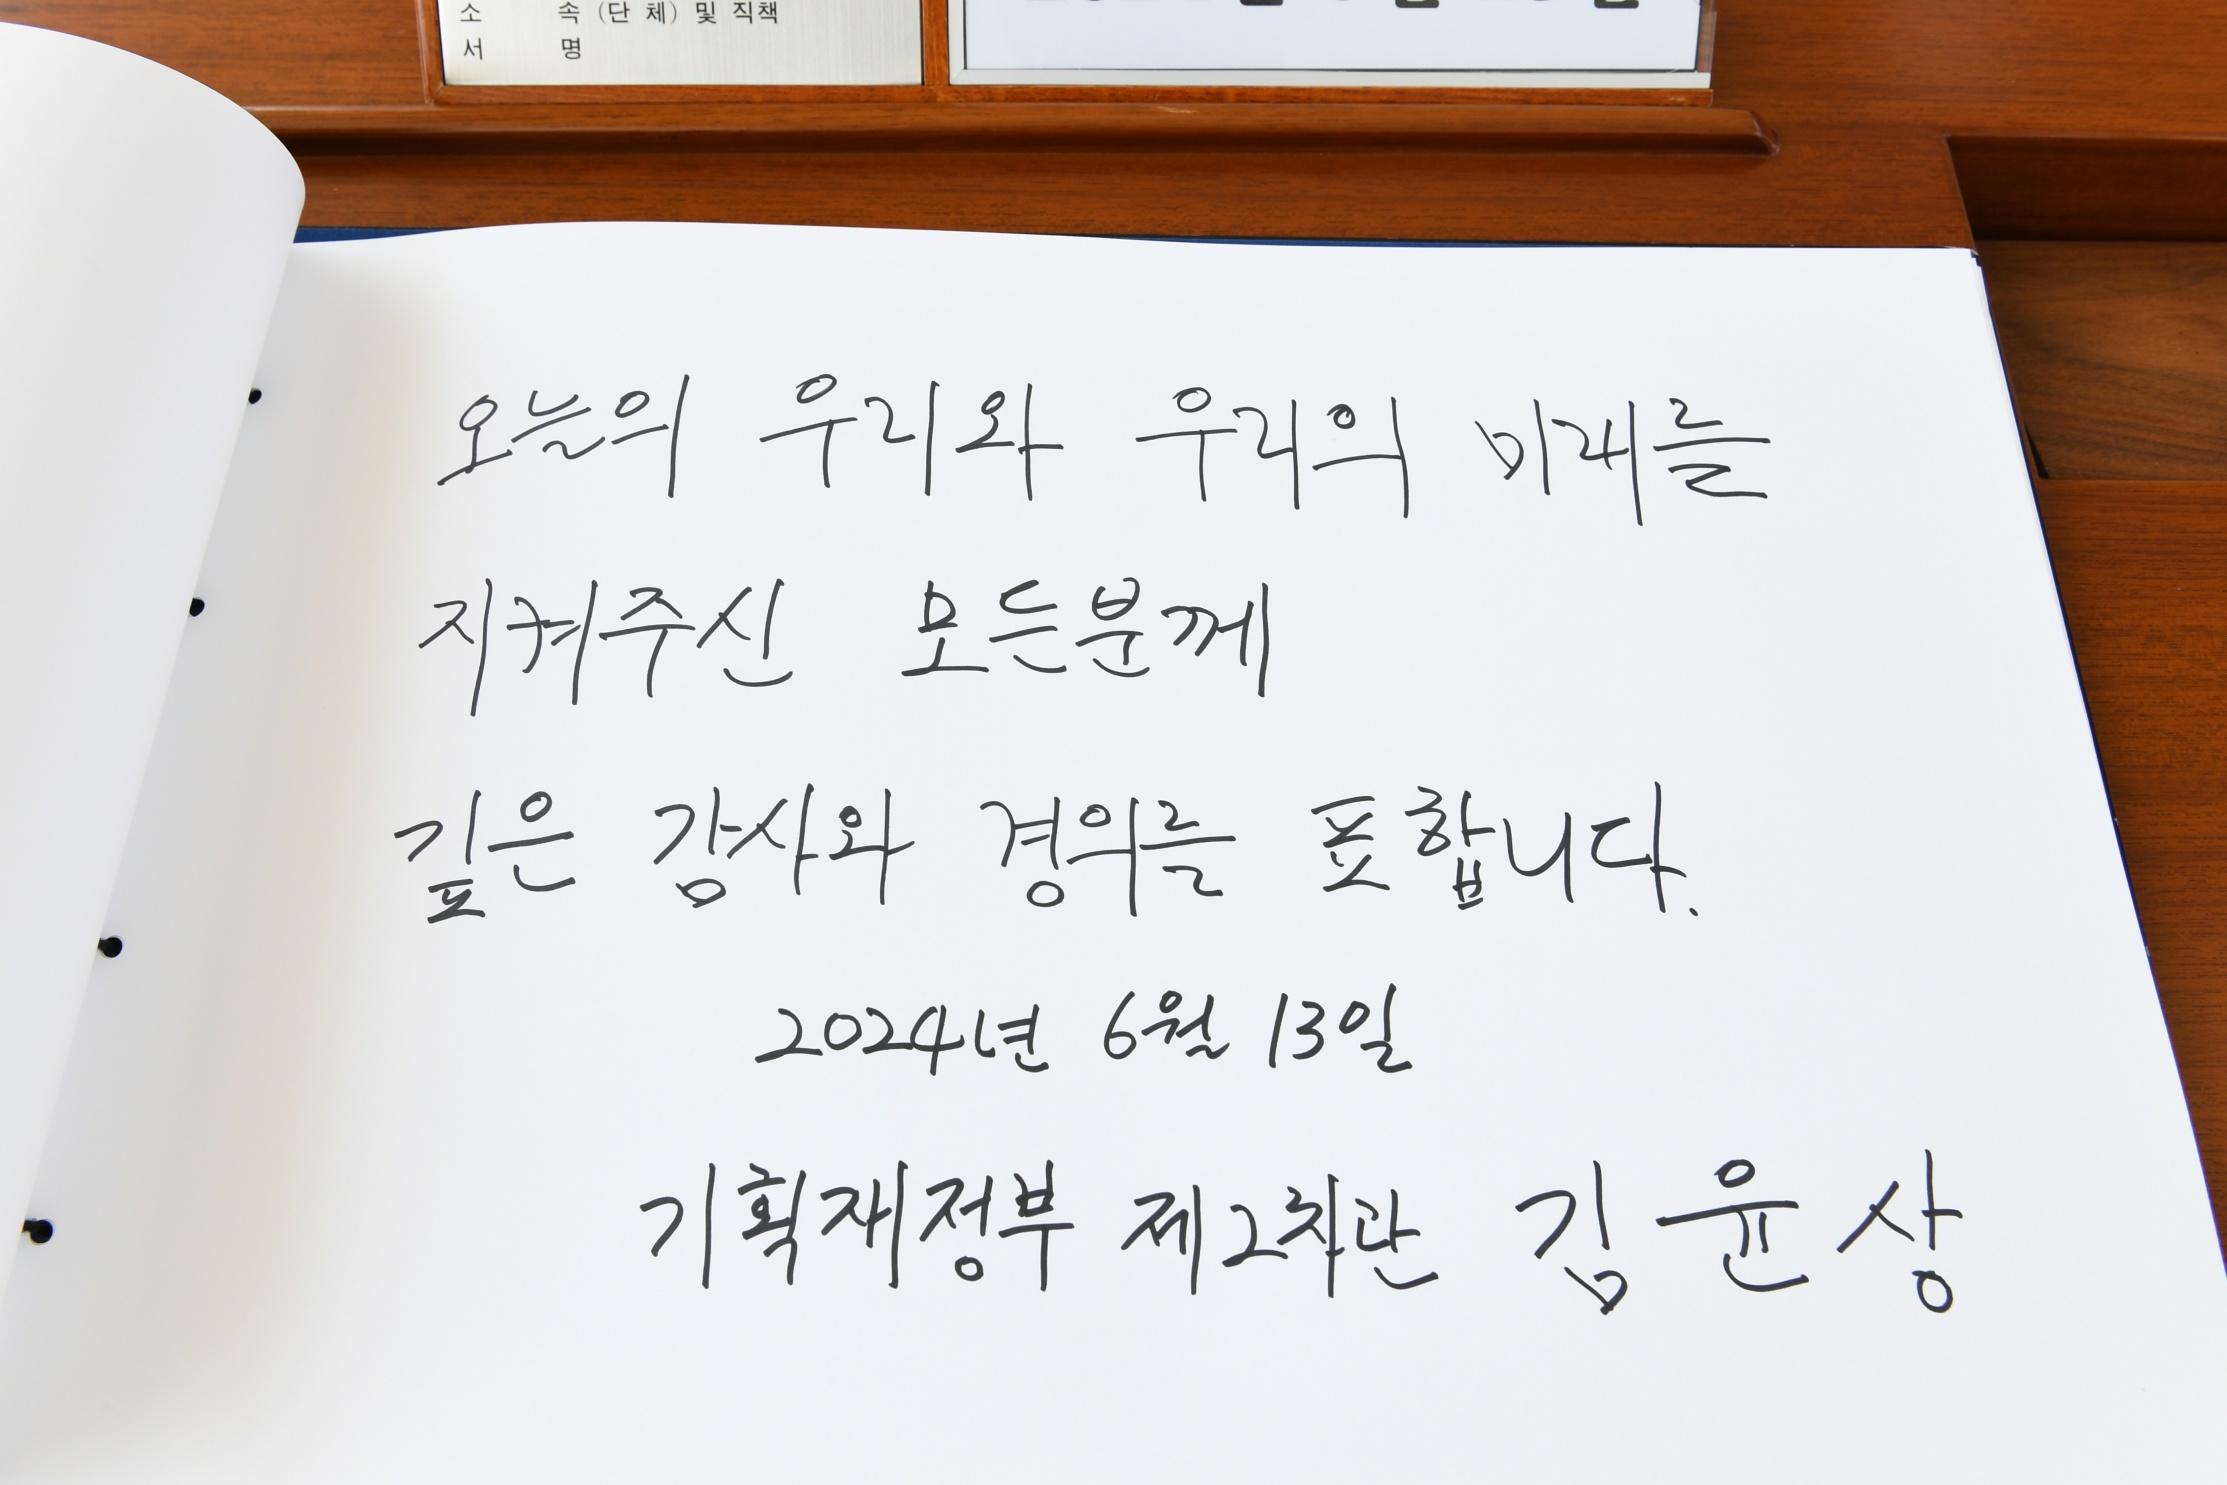 소 속 (단 체) 및 직책
서 명
오늘의 우리와 우리의 미래를
지켜주신 모든분께
깊은 감사와 경의를 표합니다.
2024년 6월 13일
기획재정부 제2차관 김 윤 상